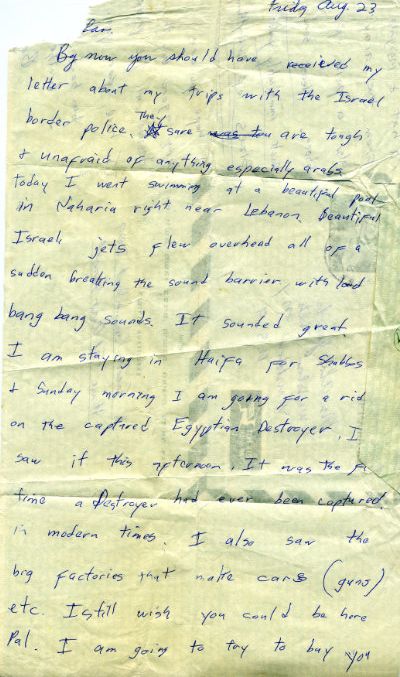 Friday Aug. 23
By now you should have received my
letter about my trips with the Israel
border police. They sure was tou are tough
& unafraid of anything especially arabs
today I went swimming at a beautiful pool
in Naharia right near Lebanon. Beautiful
Israeli jets flew overhead all of a
sudden breaking the sound barrier with loud
bang bang sounds. It sounded great.
I am staying in Haifa for Shabbos
& Sunday morning I am going for a rid
on the captured Egyptian Destroyer. I
saw it this afternoon. It was the fi
time a Destroyer had ever been captured
in modern times. I also saw the
big factories that make cars (guns)
etc. I still wish you could be here
Pal. I am going to try to buy you